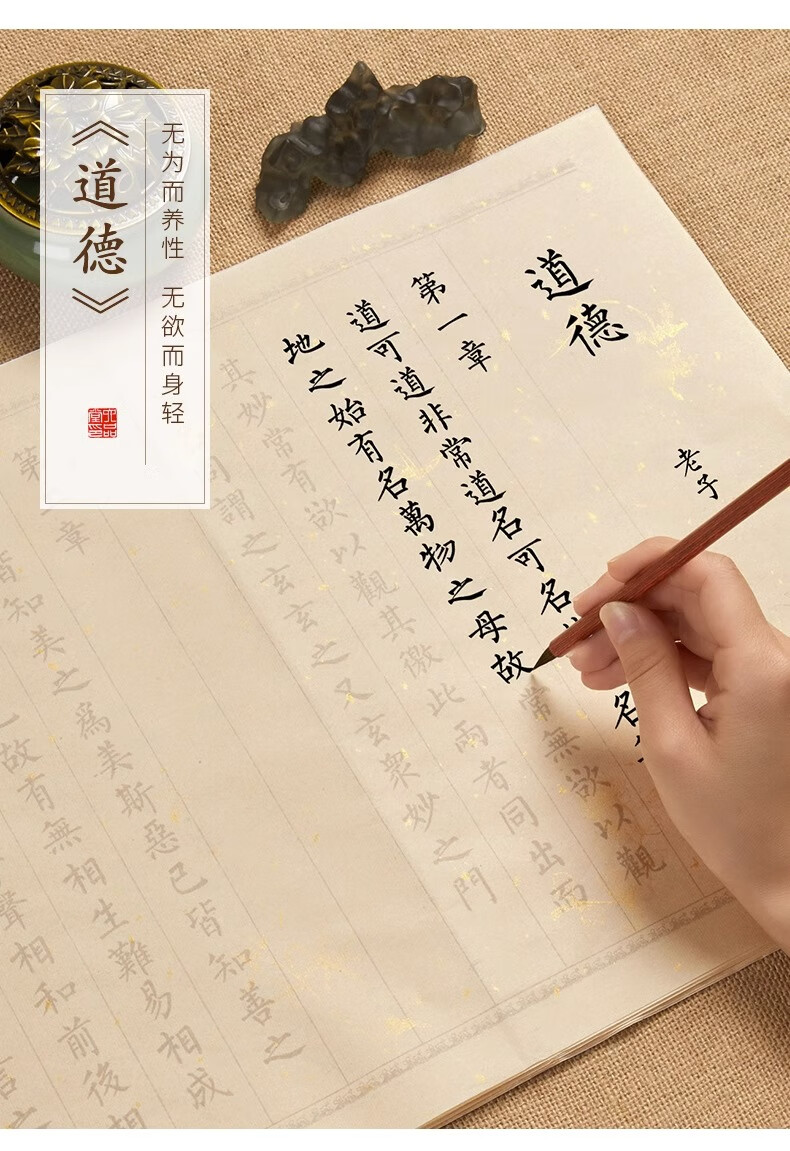 《道德》
无为而养性 无欲而身轻
六品堂印
道德
老子
第一章
道可道非常道名可名 名
地之始有名萬物之母故常無欲以觀
其妙常有欲以觀其徼此兩者同出而
同謂之玄玄之又玄眾妙之門
第 章
皆知美之爲美斯惡已皆知善之
故有無相生難易相成
聲相和前後相
言之